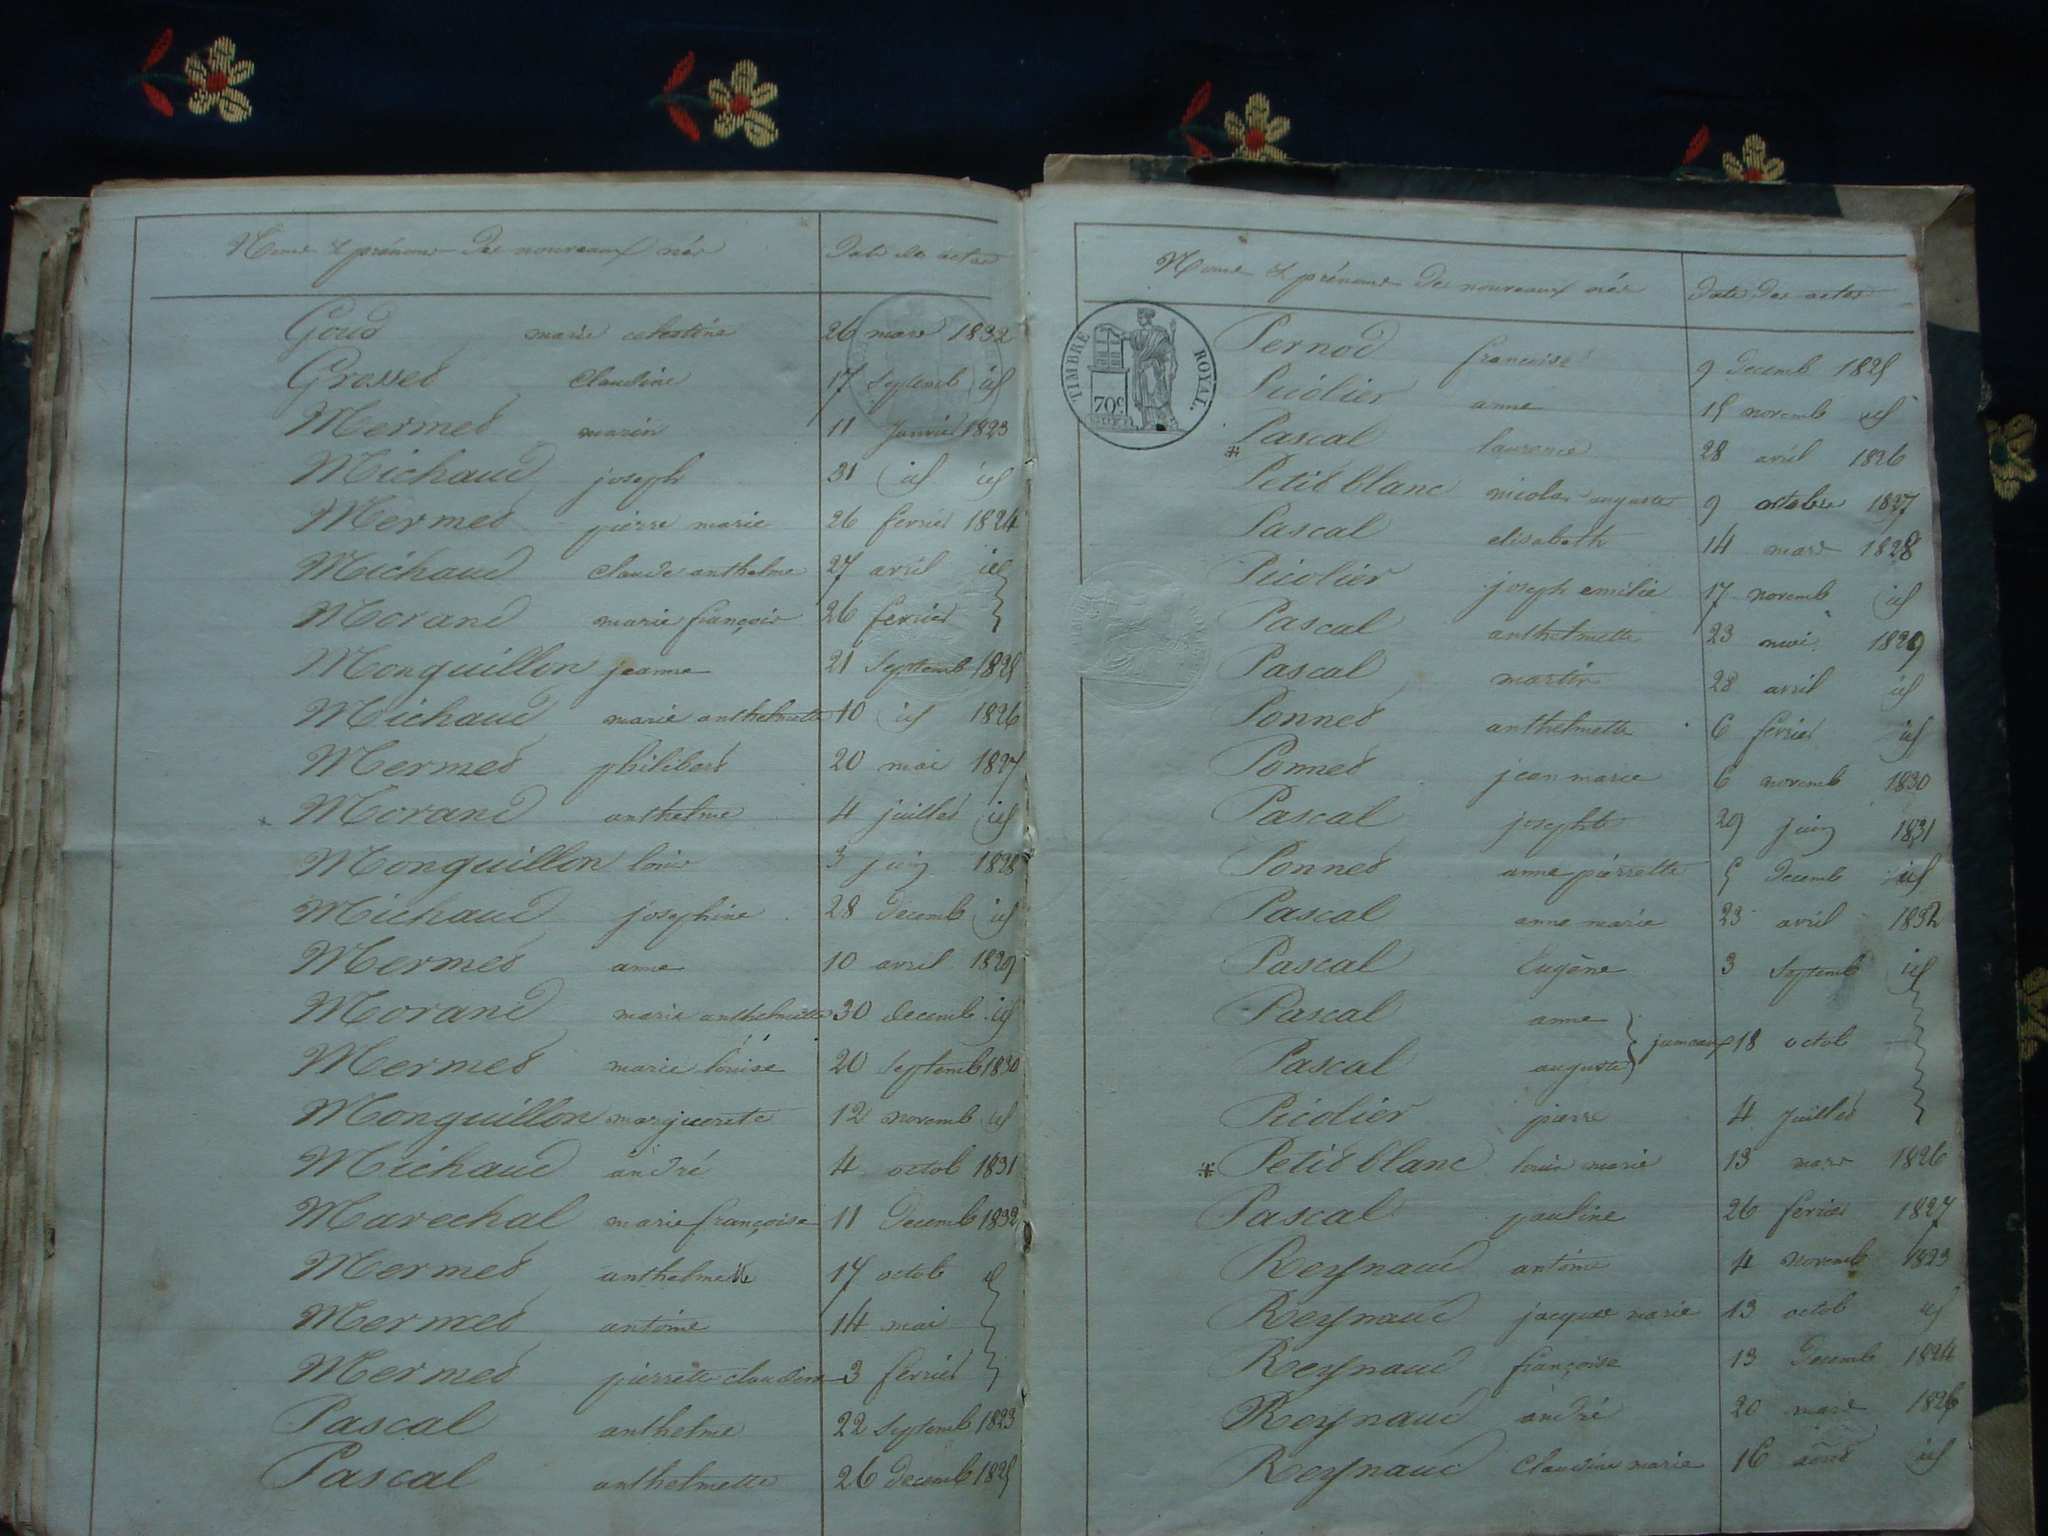 Noms & prénoms des nouveaux nés Date des actes
Goud marie celestine 26 mars 1832
Grosset claudine 17 septemb id
Mermet marin 11 janvier 1823
Michaud joseph 31 id id
Mermet pierre marie 26 fevrier 1824
Michaud claude anthelme 27 avril id
Morand marie françois 26 fevrier
Monguillon jeanne 21 septemb 1825
Michaud marie anthelmette 10 id 1826
Mermet philibert 20 mai 1827
Morand anthelme 4 juillet id
Monguillon louis 3 juin 1828
Michaud josephine 28 decemb id
Mermet anne 10 avril 1829
Morand marie anthelmette 30 decemb id
Mermet marie louise 20 septemb 1830
Monguillon marguerite 12 novemb id
Michaud andré 4 octob 1831
Marechal marie françoise 11 decemb 1832
Mermet anthelmette 17 octob id
Mermet antoine 14 mai
Mermet pierrette claudine 3 fevrier
Pascal anthelme 22 septemb 1823
Pascal anthelmette 26 decemb 1825
Noms & prénoms des nouveaux nés Date des actes
TIMBRE ROYAL.
70c
Pernod françoise 9 decemb 1825
Picolier anne 15 novemb id
Pascal laurence 28 avril 1826
* Petit blanc nicolas auguste 9 octobre 1827
Pascal elisabeth 14 mars 1828
Picolier joseph emilie 17 novemb id
Pascal anthelmette 23 mai 1829
Pascal martin 28 avril id
Ponnet anthelmette 6 fevrier id
Ponnet jean marie 6 novemb 1830
Pascal joseph 29 juin 1831
Ponnet anne pierrette 5 decemb id
Pascal anne marie 23 avril 1832
Pascal Eugène 3 septemb id
Pascal anne
jumeaux 18 octob
Pascal auguste
Picolier pierre 4 juillet
* Petit blanc louis marie 13 mars 1826
Pascal pauline 26 fevrier 1827
Reynaud antoine 4 novemb 1823
Reynaud jacques marie 13 octob id
Reynaud françoise 13 decemb 1824
Reynaud andré 20 mars 1826
Reynaud claudine marie 16 aout id